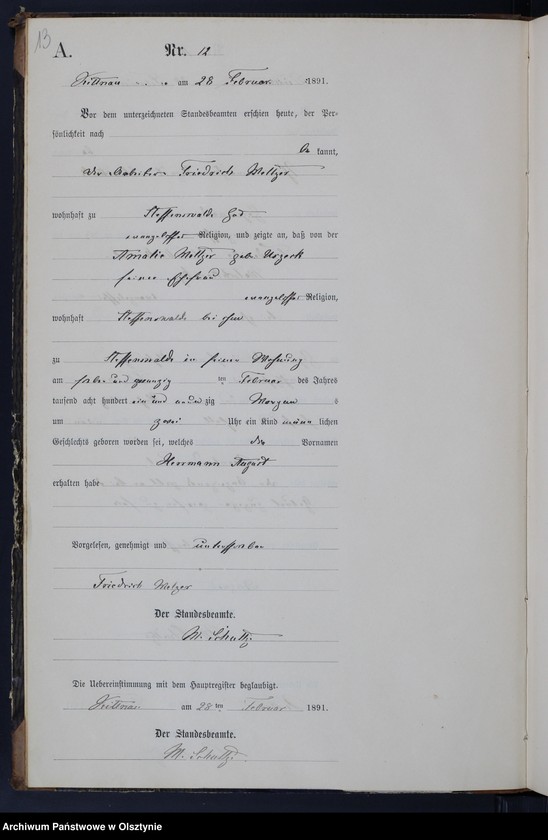 13
A. Nr. 12
am 28 Februar 1891.
Vor dem unterzeichneten Standesbeamten erschien heute, der Per-
sönlichkeit nach
be kannt,
der Arbeiter Friedrich Metzger
wohnhaft zu Steffenswalde Gut
evangelischer Religion, und zeigte an, daß von der
Amalie Metzger geb.
seiner Ehefrau
evangelischer Religion,
wohnhaft Steffenswalde bei ihm
zu Steffenswalde in seiner Wohnung
am sieben und zwanzig ten Februar des Jahres
tausend acht hundert ein und neun zig Morgens
um zwei Uhr ein Kind männ lichen
Geschlechts geboren worden sei, welches die Vornamen
Herrmann August
erhalten habe
Vorgelesen, genehmigt und unterschrieben
Friedrich Metzger
Der Standesbeamte.
M. Schultz
Die Uebereinstimmung mit dem Hauptregister beglaubigt.
am 28 ten Februar 1891.
Der Standesbeamte.
M. Schultz.
Archiwum Państwowe w Olsztynie